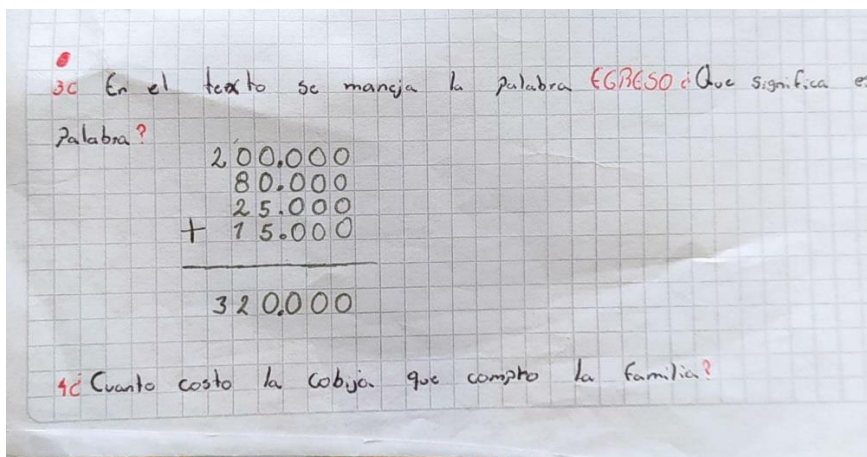 3¿ En el texto se maneja la palabra EGRESO ¿Que significa es
Palabra?
200.000
80.000
25.000
+ 15.000
320.000
4¿ Cuanto costo la cobija que compro la familia?